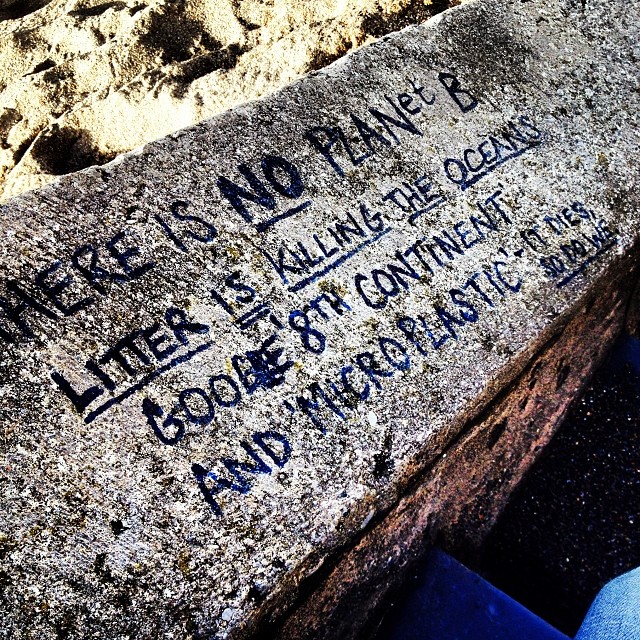 THERE IS NO PLANet B
LITTER IS KILLING THE OCEANS
GOOGLE '8TH CONTINENT'
AND 'MICROPLASTIC' - IT DIES,
SO DO WE